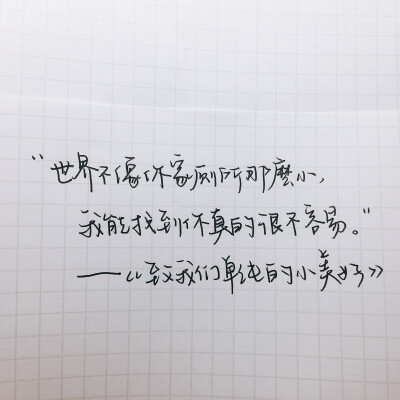 "世界不像你家厕所那麼小，
我能找到你真的很不容易。"
——《致我们单纯的小美好》